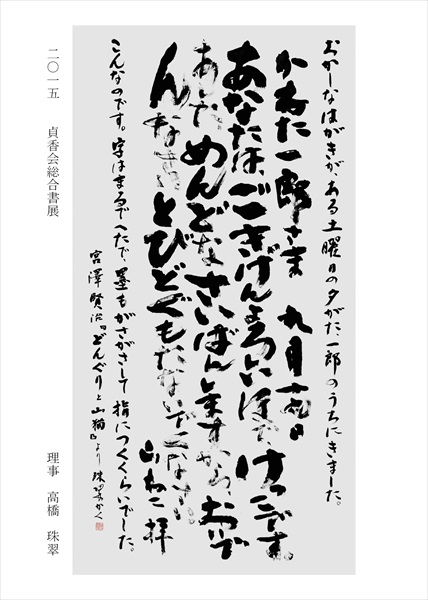 おかしなはがきが、ある土曜日の夕がた、一郎のうちにきました。
かねた一郎さま 九月十九日
あなたは、ごきげんよろしいほで、けっこです。
あした、めんどなさいばんしますから、おいで
んなさい。とびどぐもたないでください。
山ねこ 拝
こんなのです。字はまるでへたで、墨もがさがさして指につくくらいでした。
宮澤賢治「どんぐりと山猫」より 珠翠かく
二〇一五 貞香会総合書展
理事 高橋 珠翠